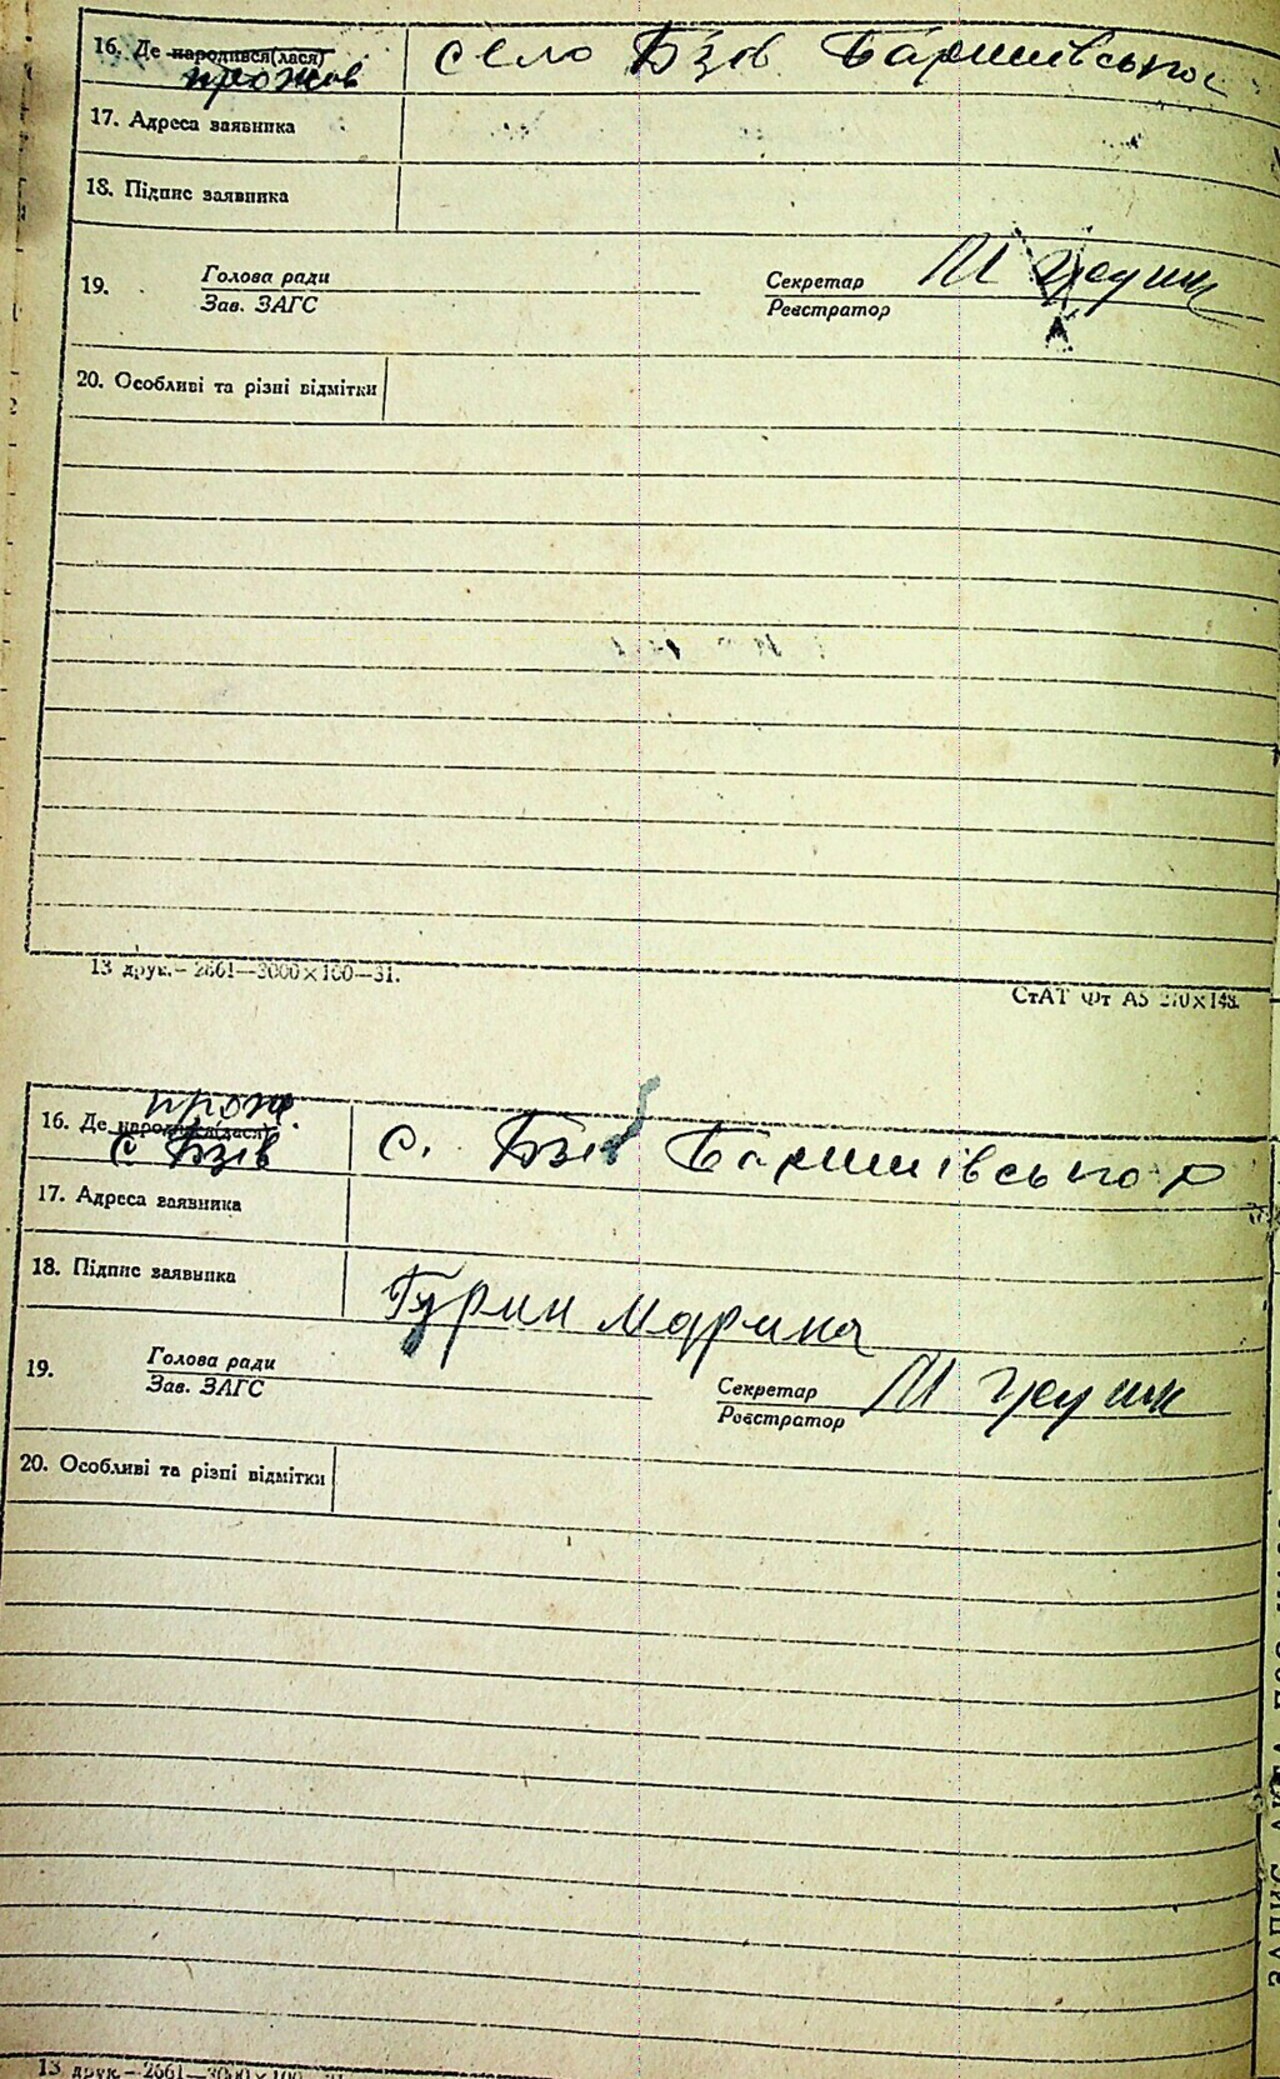 16. Де народився(лася) село Бзів Баришівської
прожив
17. Адреса заявника
18. Підпис заявника
19. Голова ради
Зав. ЗАГС
Секретар
Реєстратор
20. Особливі та різні відмітки
13 друк.—2661—3000×100—31.
СтАТ Фт А5 210×148.
прож.
16. Де народився(лася) с. Бзів Баришівського р
с Бзів
17. Адреса заявника
18. Підпис заявника Гурин Марина
19. Голова ради
Зав. ЗАГС
Секретар
Реєстратор
20. Особливі та різні відмітки
13 друк.—2661—3000×100—31